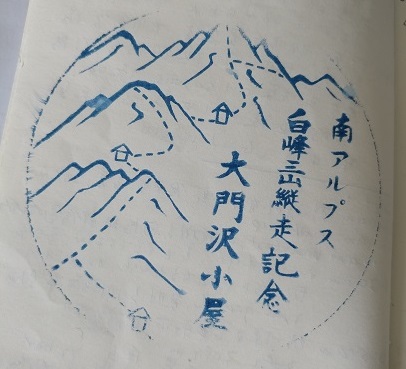 南アルプス
白峰三山縦走記念
大門沢小屋